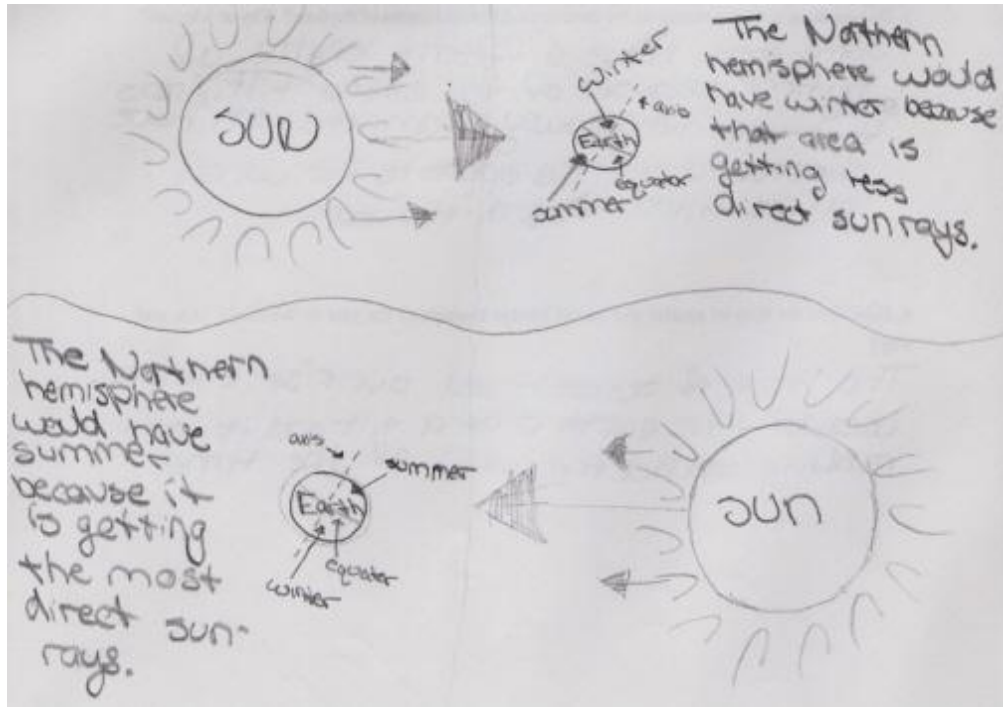 SUN
winter
axis
Earth
equator
summer
The Northern
hemisphere would
have winter because
that area is
getting less
direct sun rays.
The Northern
hemisphere
would have
summer
because it
is getting
the most
direct sun-
rays.
axis
summer
Earth
equator
winter
SUN